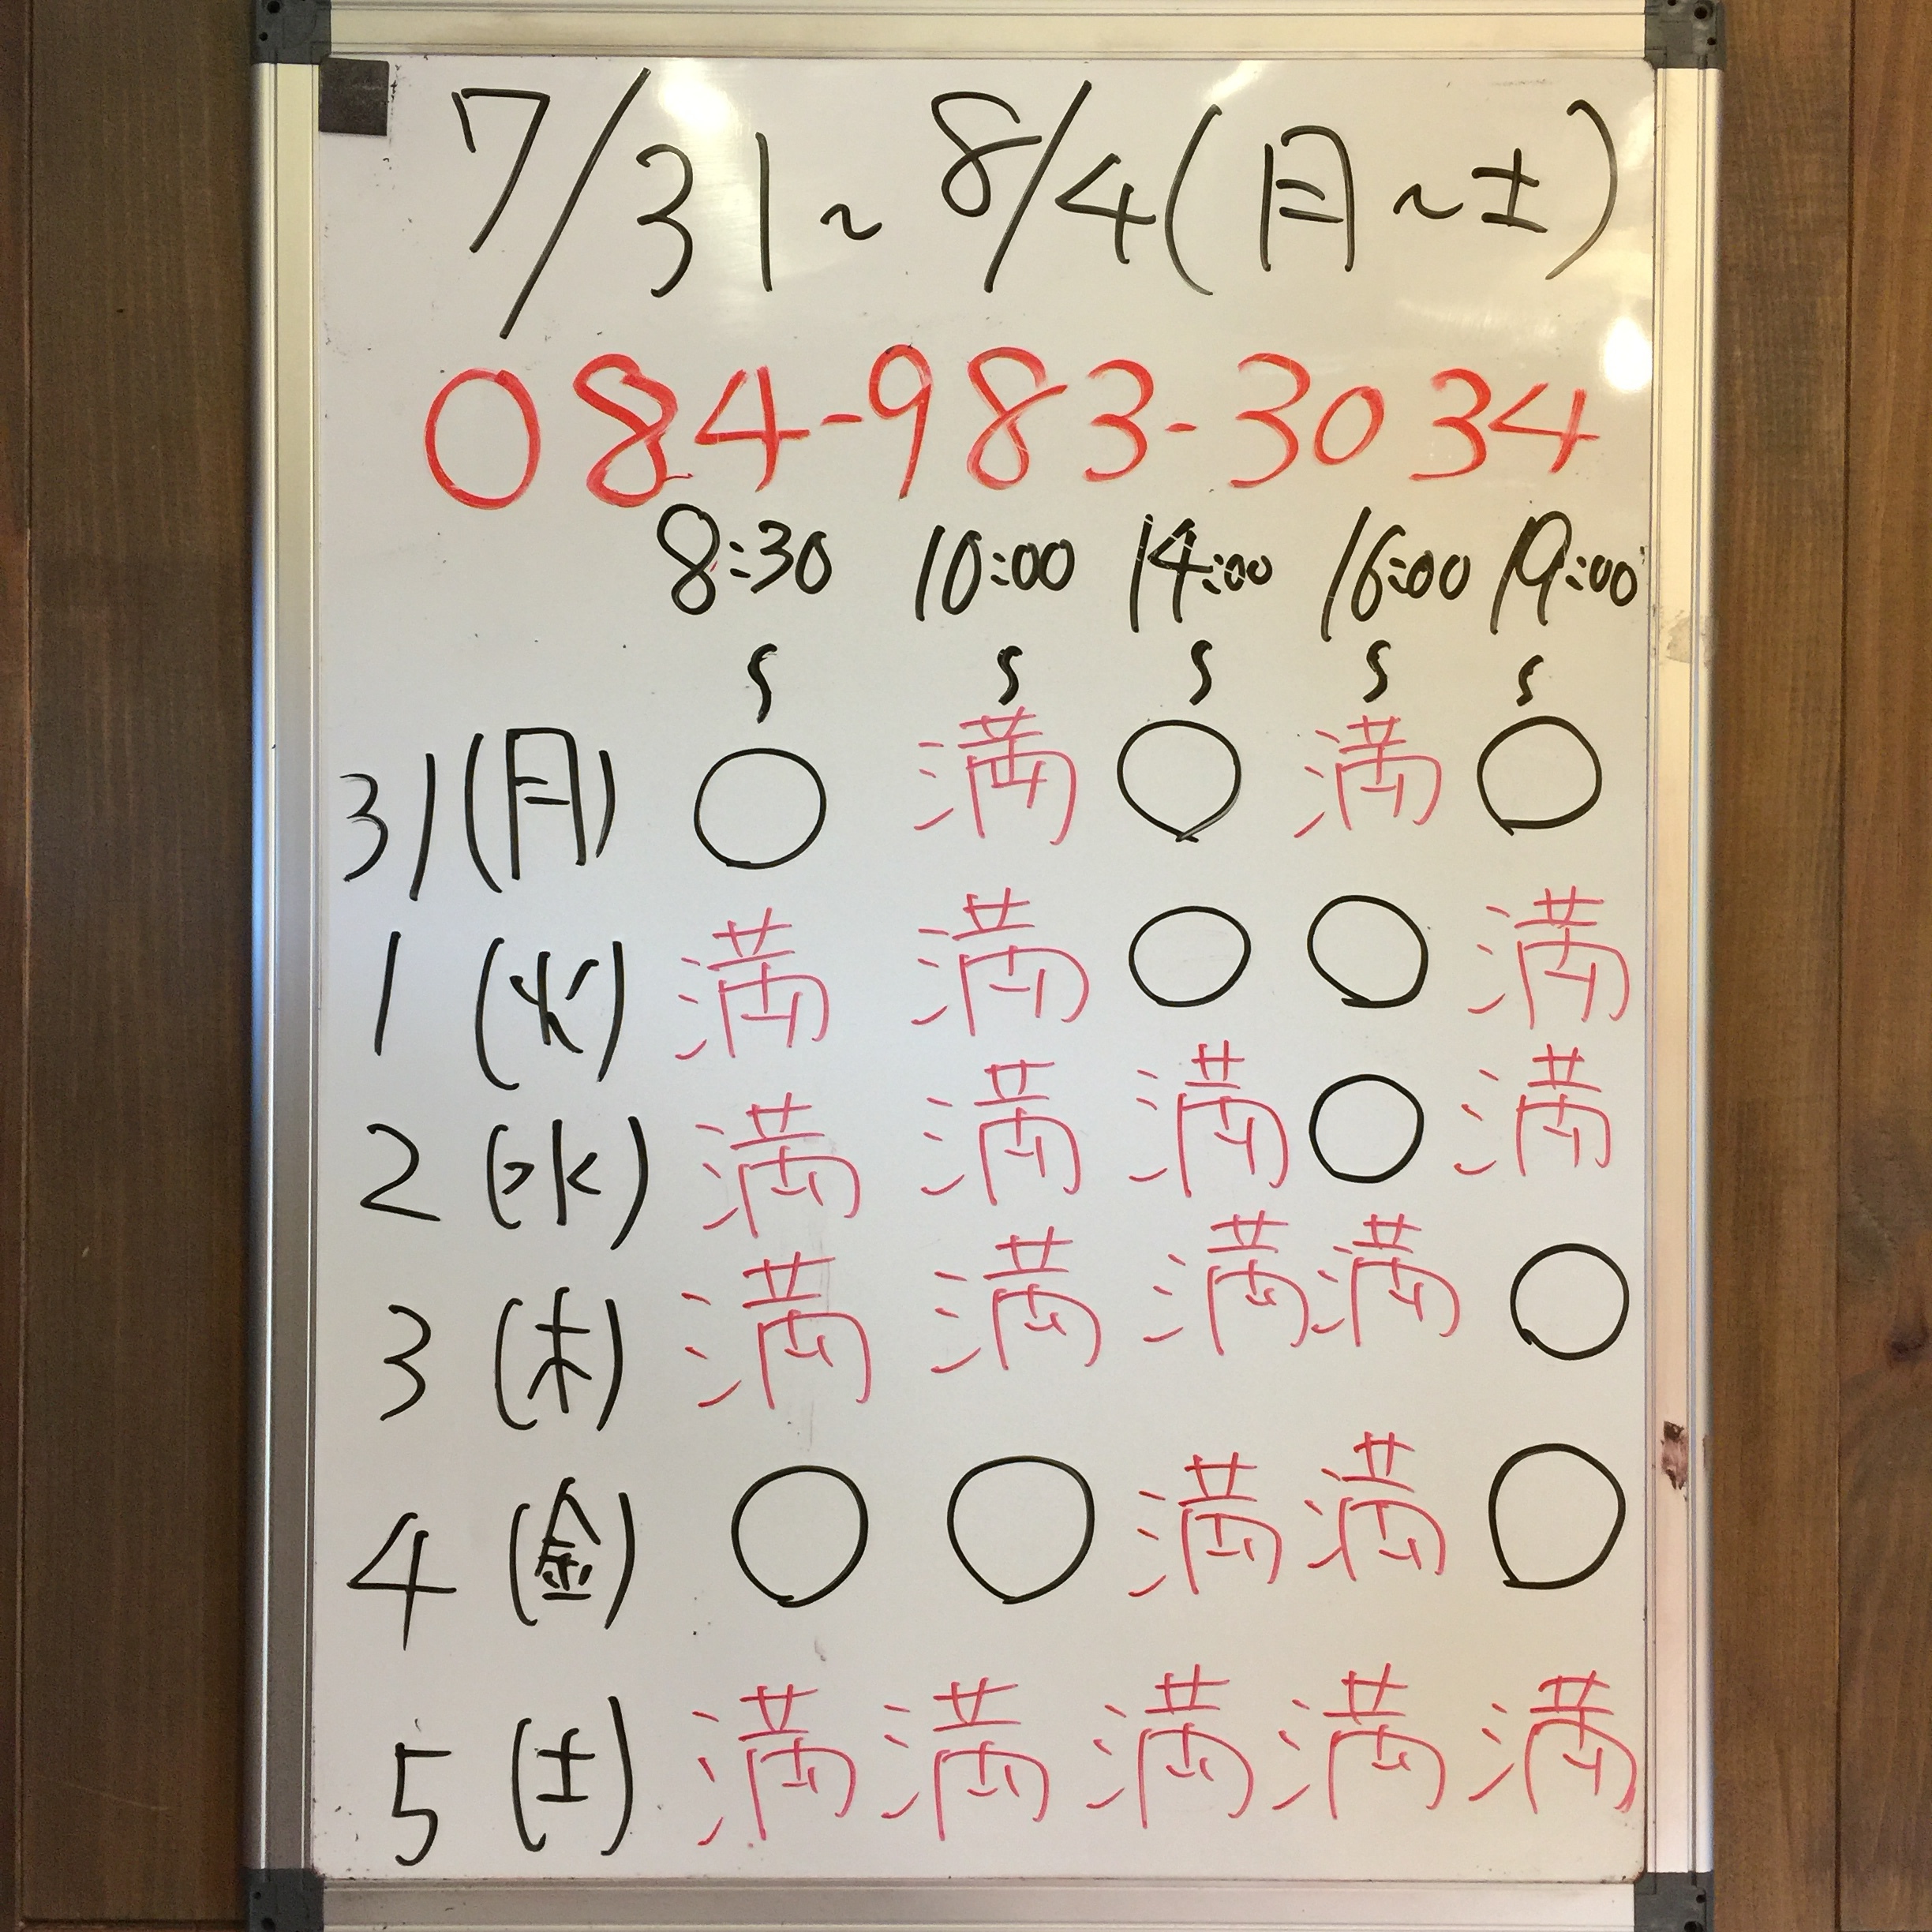 7/31～8/4(月～土)
084-983-3034
8:30 10:00 14:00 16:00 19:00
〜 〜 〜 〜 〜
31(月) ○ 満 ○ 満 ○
1(火) 満 満 ○ ○ 満
2(水) 満 満 満 ○ 満
3(木) 満 満 満 満 ○
4(金) ○ ○ 満 満 ○
5(土) 満 満 満 満 満